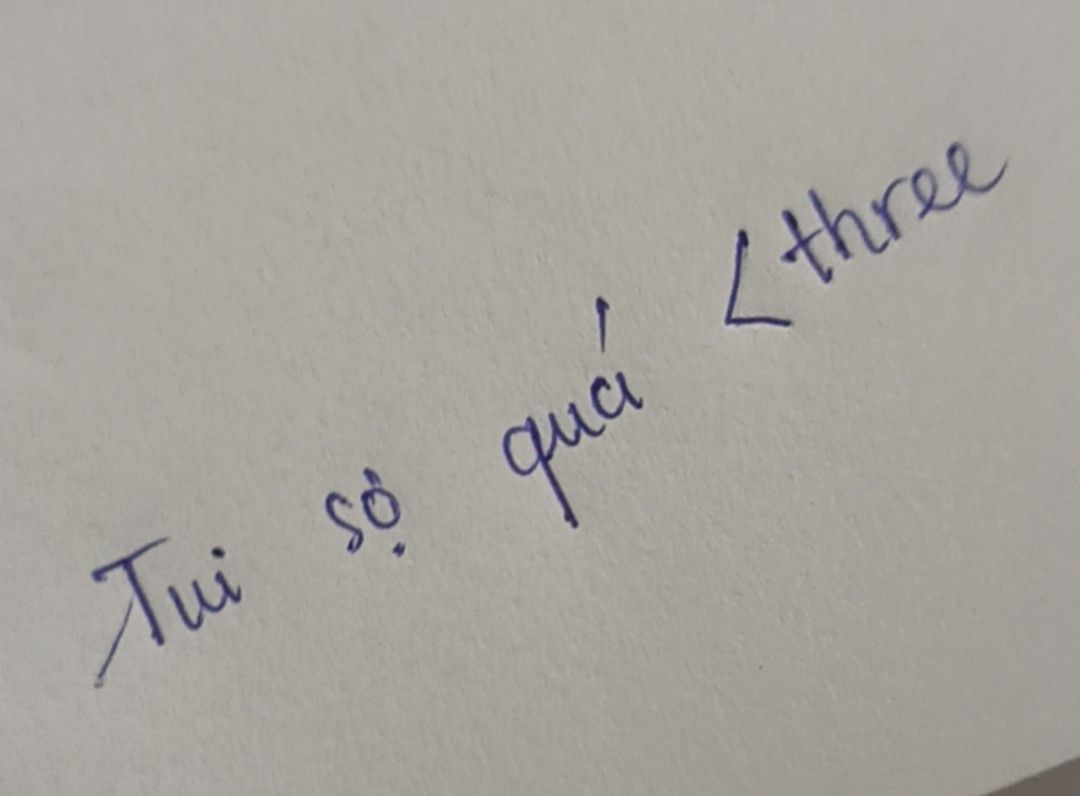 Tui sợ quá <three